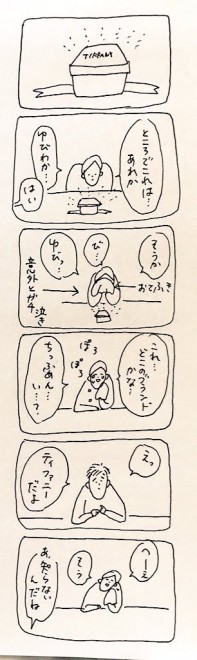 TIFFANY
ところでこれは…
あれか
ゆびわか…
はい
そうか
び…
ゆび…
おてふき
意外とガチ
泣き
これ…
どこのブランド
かな…
ぽろ
ぽろ
ちっぷあん…
い…？
えっ
ティファニー
だよ
へーえ
そう
あ、知らない
んだね